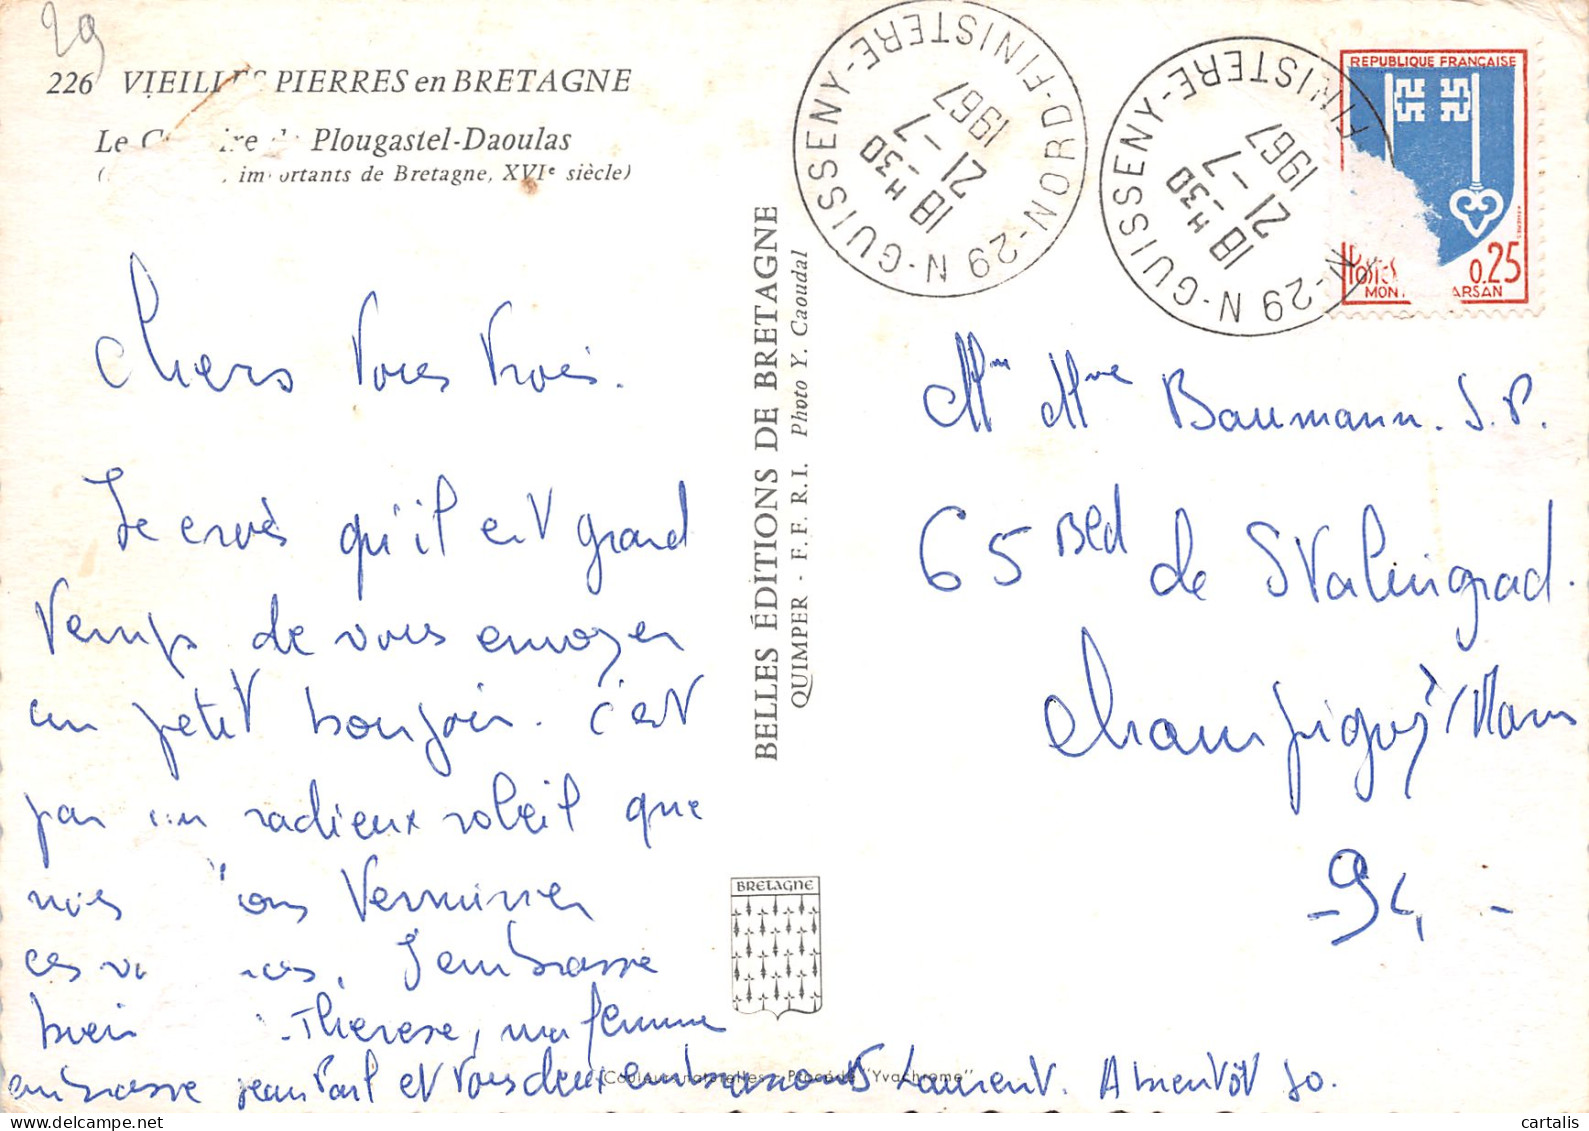 29
226 VIEILLES PIERRES en BRETAGNE
Le Calvaire de Plougastel-Daoulas
importants de Bretagne, XVIe siècle)
Chers Vous trois.
Je crois qu'il est grand
temps de vous envoyer
un petit bonjoir. C'est
par un radieux soleil que
nous ons terminer
ces va nces. J'embrasse
bien Therese, ma femme
embrasse jean Paul et tous deux embrassons Laurent. A bientôt Jo.
BELLES ÉDITIONS DE BRETAGNE
QUIMPER - E. F. R. I. Photo Y. Caoudal
BRETAGNE
Couleurs naturelles - Procédé "Yvachrome"
GUISSENY-29 N-GUISSENY-FINISTERE-NORD-FINISTERE
18 H 30
21 -7
1967
GUISSENY-29 N-FINISTERE
18 H 30
21 -7
1967
REPUBLIQUE FRANÇAISE
POSTES 0,25
MONT ARSAN
Mr Mme Baumann. S.P.
65 Bld de Stalingrad.
Champigny/Marn
-94-
cartalis